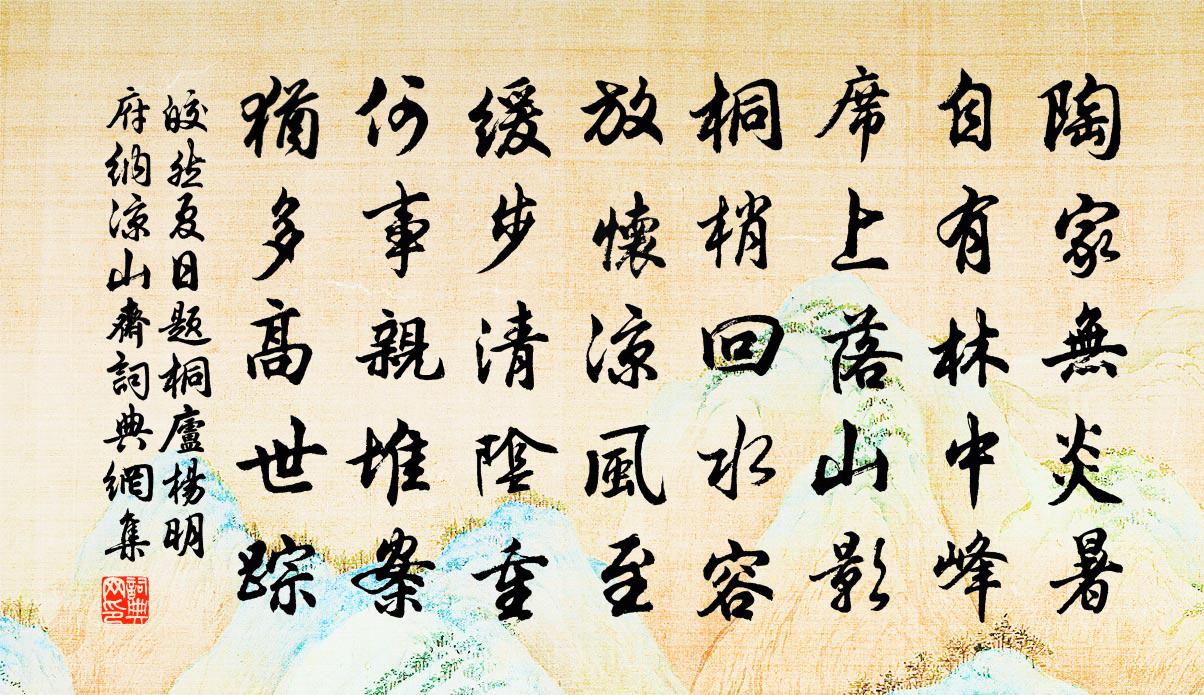 陶家無炎暑
自有林中峰
席上落山影
桐梢回水容
放懷涼風至
緩步清陰重
何事親堆案
猶多高世踪
皎然夏日題桐廬楊明
府納涼山齋詞典網集
詞典网印